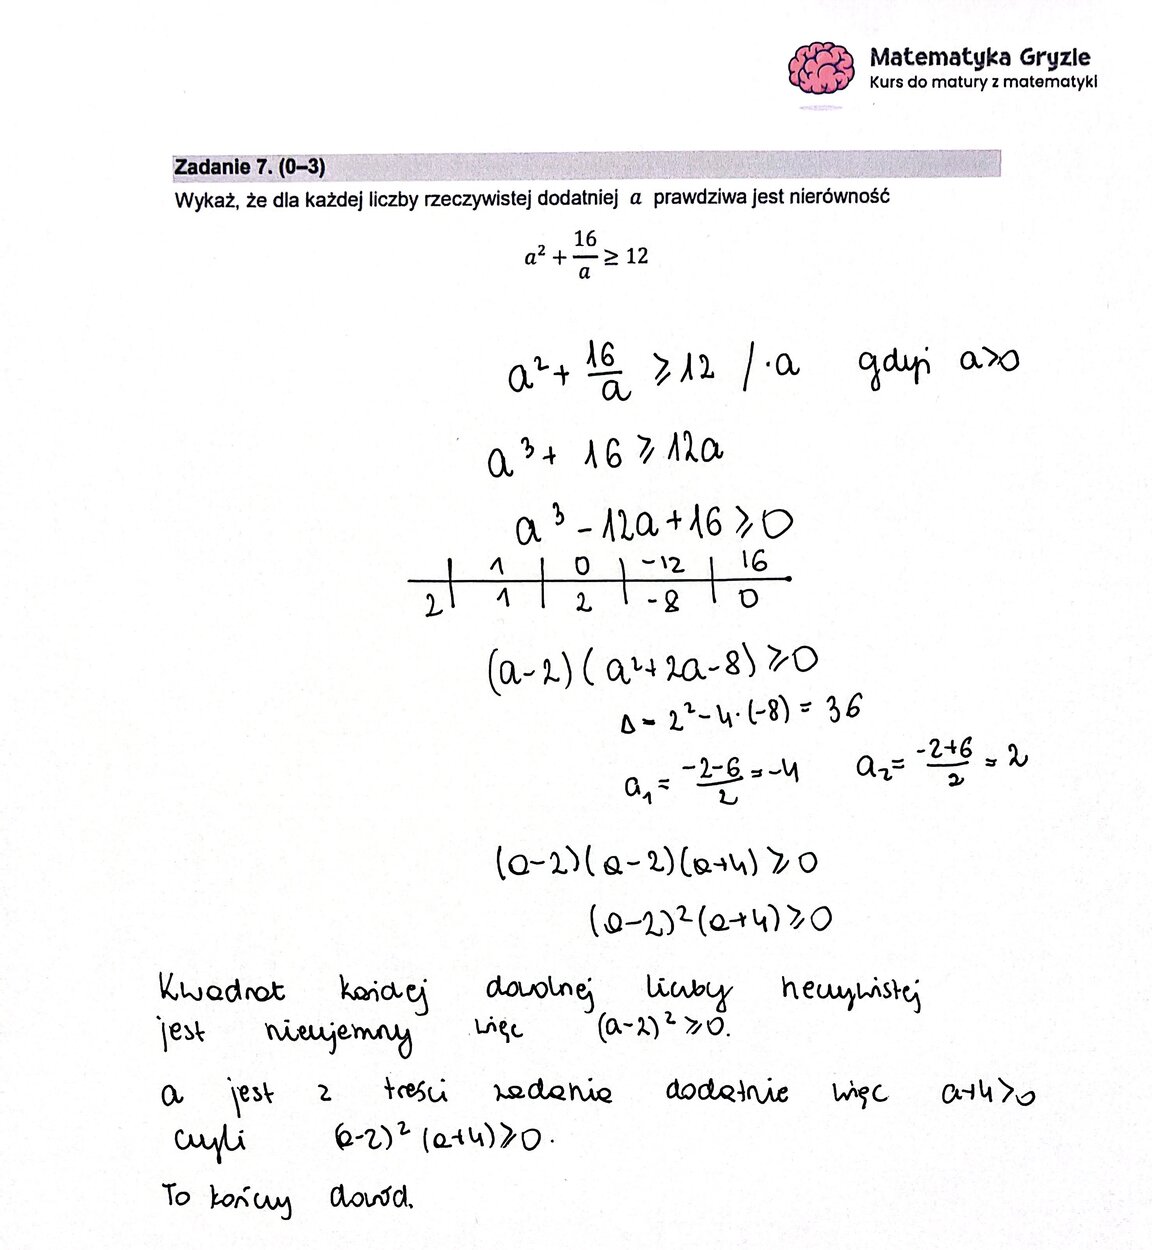 Matematyka Gryzie
Kurs do matury z matematyki
Zadanie 7. (0–3)
Wykaż, że dla każdej liczby rzeczywistej dodatniej a prawdziwa jest nierówność
a² + 16/a ≥ 12
a² + 16/a ≥ 12 / ·a gdyż a>0
a³ + 16 ≥ 12a
a³ - 12a + 16 ≥ 0
1 | 0 | -12 | 16
2 | 1 | 2 | -8 | 0
(a-2)(a²+2a-8) ≥ 0
Δ = 2²-4·(-8) = 36
a₁ = (-2-6)/2 = -4 a₂ = (-2+6)/2 = 2
(a-2)(a-2)(a+4) ≥ 0
(a-2)²(a+4) ≥ 0
Kwadrat każdej dowolnej liczby rzeczywistej
jest nieujemny więc (a-2)² ≥ 0.
a jest z treści zadania dodatnie więc a+4>0
czyli (a-2)²(a+4) ≥ 0.
To kończy dowód.